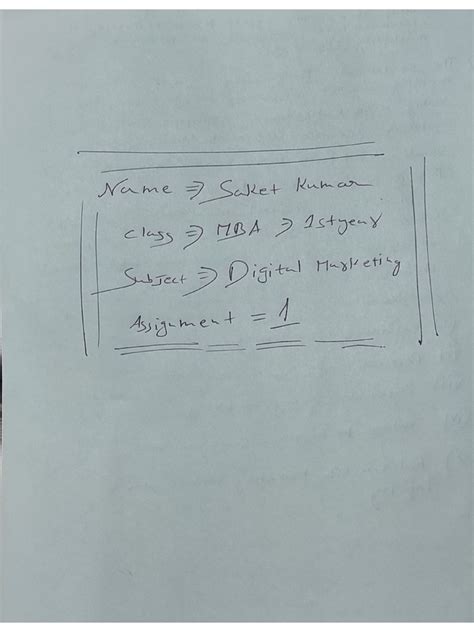 Name ⇒ Saket Kumar
Class ⇒ MBA ⇒ 1st year
Subject ⇒ Digital Marketing
Assignment = 1